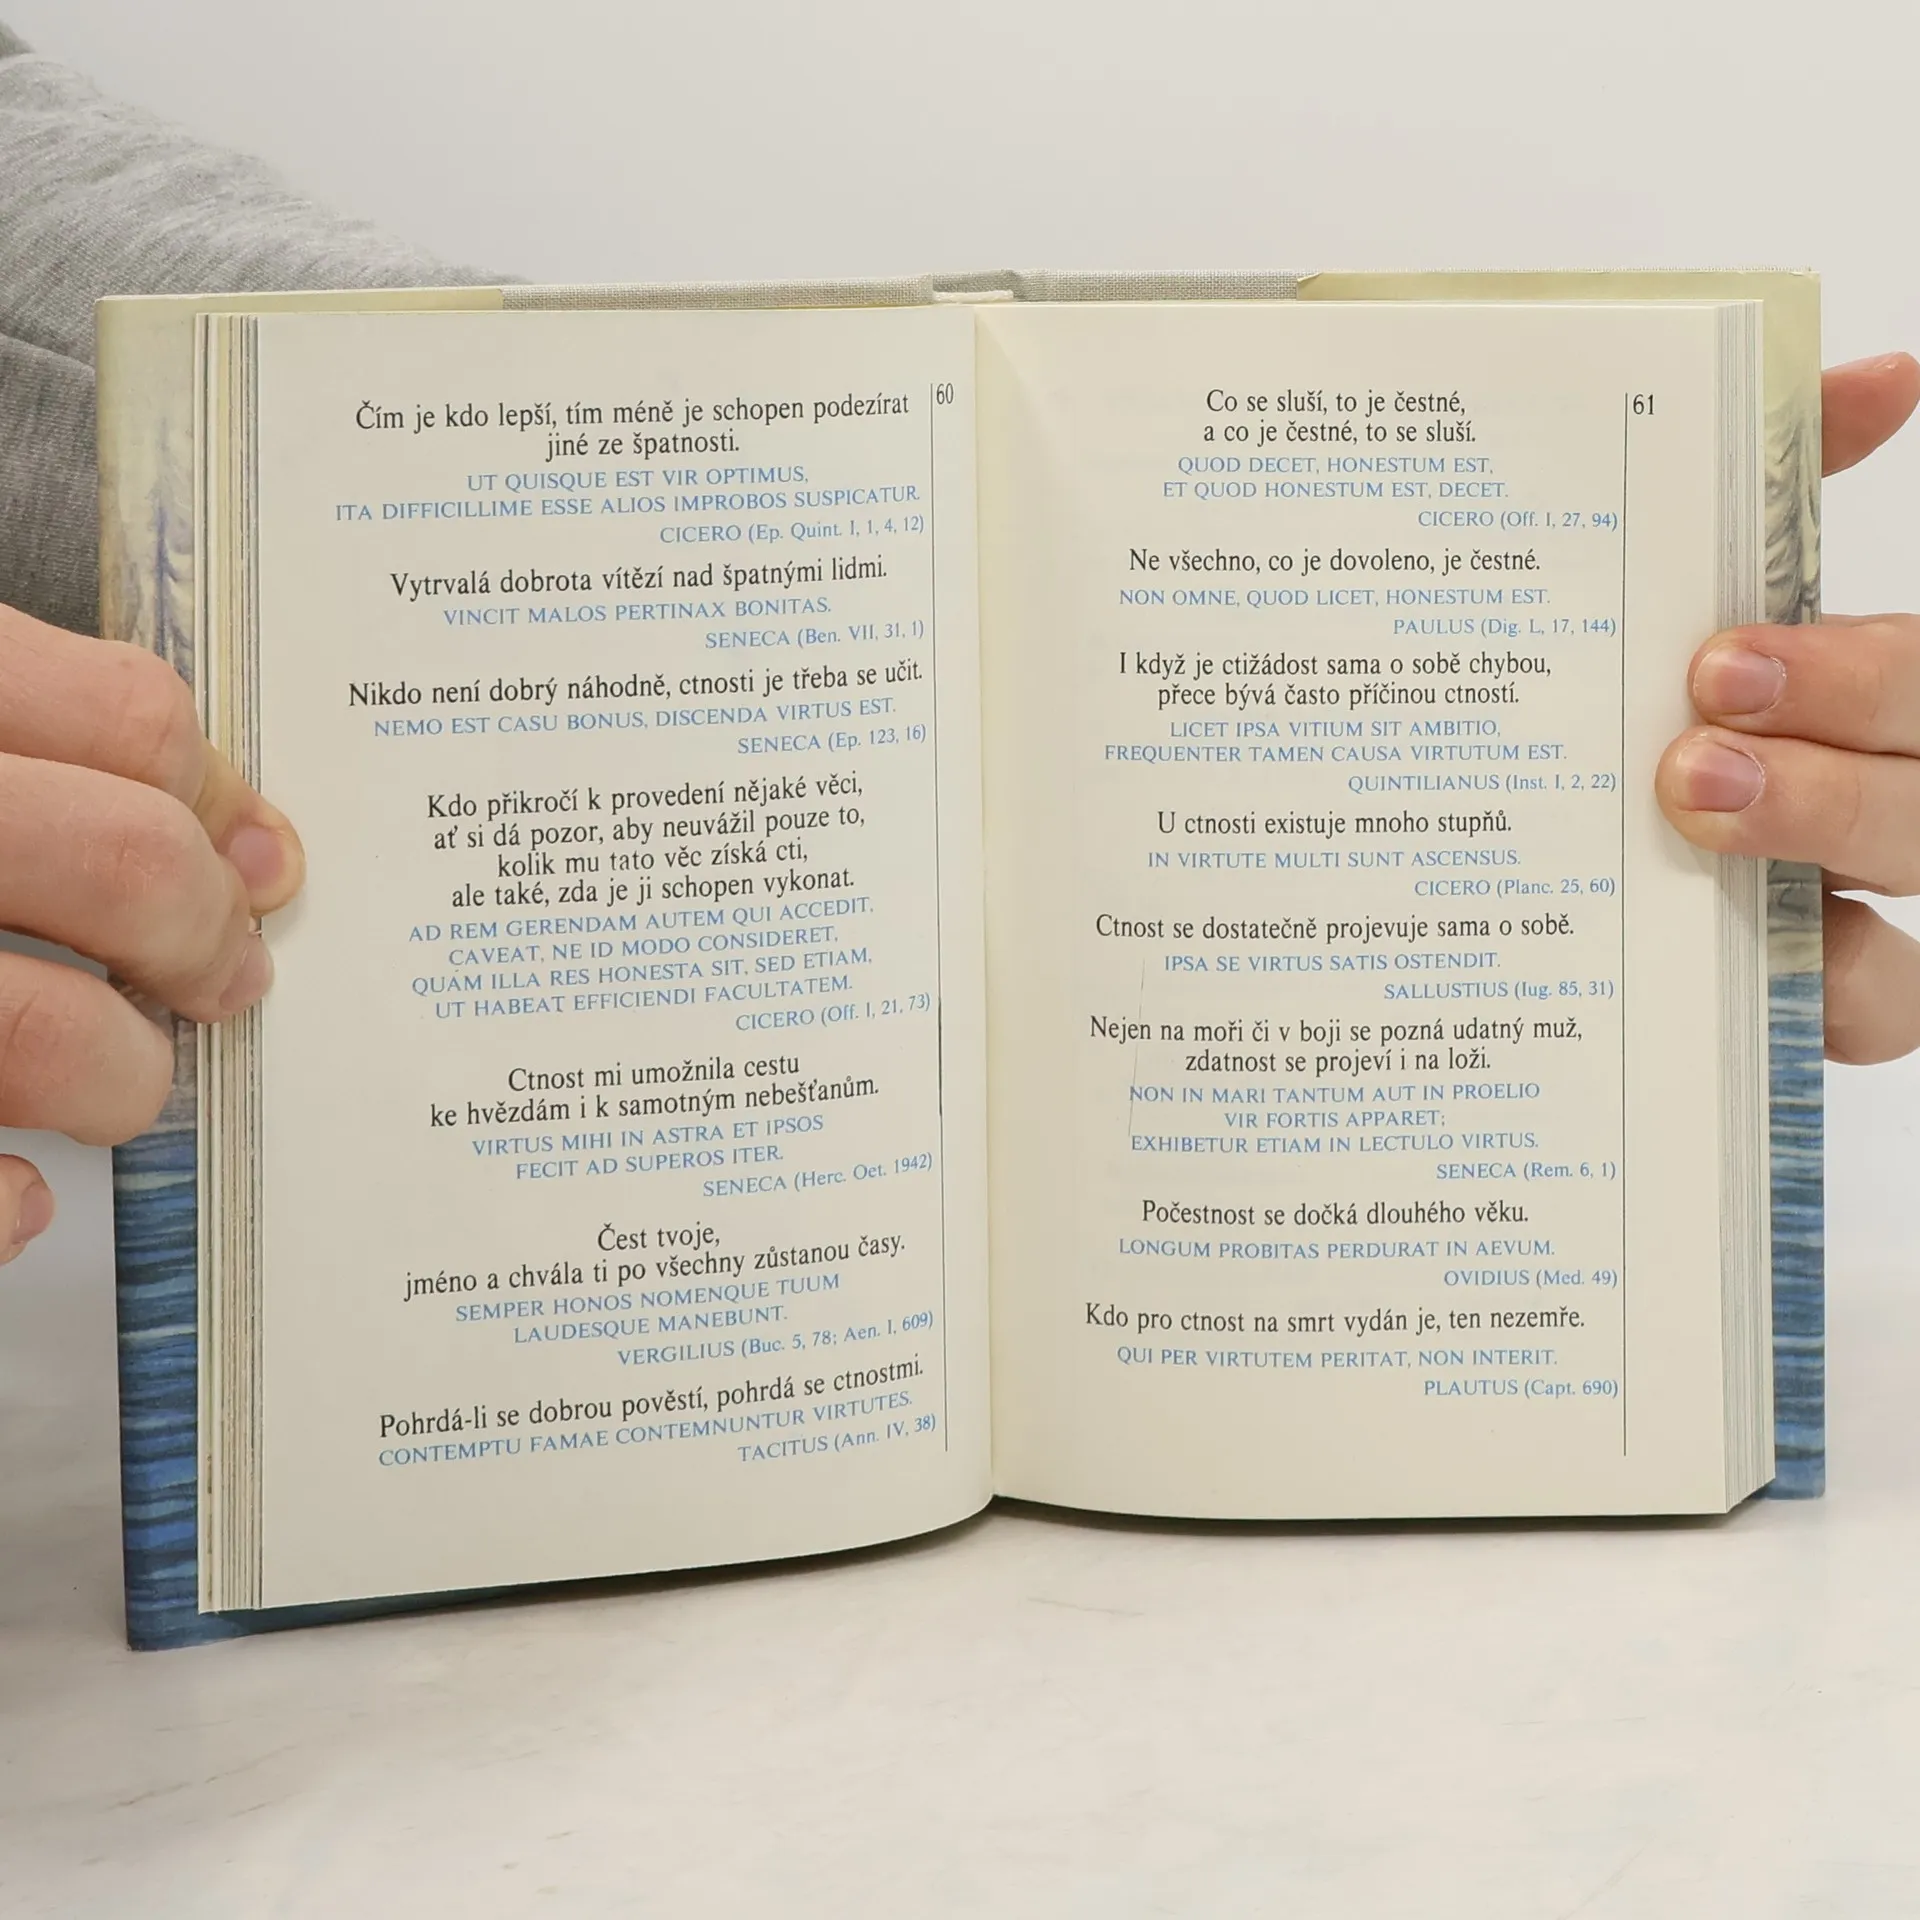 60
Čím je kdo lepší, tím méně je schopen podezírat
jiné ze špatnosti.
UT QUISQUE EST VIR OPTIMUS,
ITA DIFFICILLIME ESSE ALIOS IMPROBOS SUSPICATUR.
CICERO (Ep. Quint. I, 1, 4, 12)
Vytrvalá dobrota vítězí nad špatnými lidmi.
VINCIT MALOS PERTINAX BONITAS.
SENECA (Ben. VII, 31, 1)
Nikdo není dobrý náhodně, ctnosti je třeba se učit.
NEMO EST CASU BONUS, DISCENDA VIRTUS EST.
SENECA (Ep. 123, 16)
Kdo přikročí k provedení nějaké věci,
ať si dá pozor, aby neuvážil pouze to,
kolik mu tato věc získá cti,
ale také, zda je ji schopen vykonat.
AD REM GERENDAM AUTEM QUI ACCEDIT,
CAVEAT, NE ID MODO CONSIDERET,
QUAM ILLA RES HONESTA SIT, SED ETIAM,
UT HABEAT EFFICIENDI FACULTATEM.
CICERO (Off. I, 21, 73)
Ctnost mi umožnila cestu
ke hvězdám i k samotným nebešťanům.
VIRTUS MIHI IN ASTRA ET IPSOS
FECIT AD SUPEROS ITER.
SENECA (Herc. Oet. 1942)
Čest tvoje,
jméno a chvála ti po všechny zůstanou časy.
SEMPER HONOS NOMENQUE TUUM
LAUDESQUE MANEBUNT.
VERGILIUS (Buc. 5, 78; Aen. I, 609)
Pohrdá-li se dobrou pověstí, pohrdá se ctnostmi.
CONTEMPTU FAMAE CONTEMNUNTUR VIRTUTES.
TACITUS (Ann. IV, 38)
61
Co se sluší, to je čestné,
a co je čestné, to se sluší.
QUOD DECET, HONESTUM EST,
ET QUOD HONESTUM EST, DECET.
CICERO (Off. I, 27, 94)
Ne všechno, co je dovoleno, je čestné.
NON OMNE, QUOD LICET, HONESTUM EST.
PAULUS (Dig. L, 17, 144)
I když je ctižádost sama o sobě chybou,
přece bývá často příčinou ctností.
LICET IPSA VITIUM SIT AMBITIO,
FREQUENTER TAMEN CAUSA VIRTUTUM EST.
QUINTILIANUS (Inst. I, 2, 22)
U ctnosti existuje mnoho stupňů.
IN VIRTUTE MULTI SUNT ASCENSUS.
CICERO (Planc. 25, 60)
Ctnost se dostatečně projevuje sama o sobě.
IPSA SE VIRTUS SATIS OSTENDIT.
SALLUSTIUS (Iug. 85, 31)
Nejen na moři či v boji se pozná udatný muž,
zdatnost se projeví i na loži.
NON IN MARI TANTUM AUT IN PROELIO
VIR FORTIS APPARET;
EXHIBETUR ETIAM IN LECTULO VIRTUS.
SENECA (Rem. 6, 1)
Počestnost se dočká dlouhého věku.
LONGUM PROBITAS PERDURAT IN AEVUM.
OVIDIUS (Med. 49)
Kdo pro ctnost na smrt vydán je, ten nezemře.
QUI PER VIRTUTEM PERITAT, NON INTERIT.
PLAUTUS (Capt. 690)